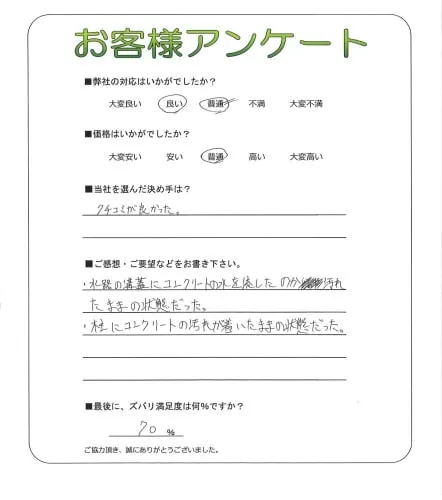 お客様アンケート
■弊社の対応はいかがでしたか？
大変良い 良い 普通 不満 大変不満
■価格はいかがでしたか？
大変安い 安い 普通 高い 大変高い
■当社を選んだ決め手は？
クチコミが良かった。
■ご感想・ご要望などをお書き下さい。
・水路の溝蓋にコンクリートの水を流したのか汚れ
たままの状態だった。
・柱にコンクリートの汚れが着いたままの状態だった。
■最後に、ズバリ満足度は何%ですか？
70 %
ご協力頂き、誠にありがとうございました。